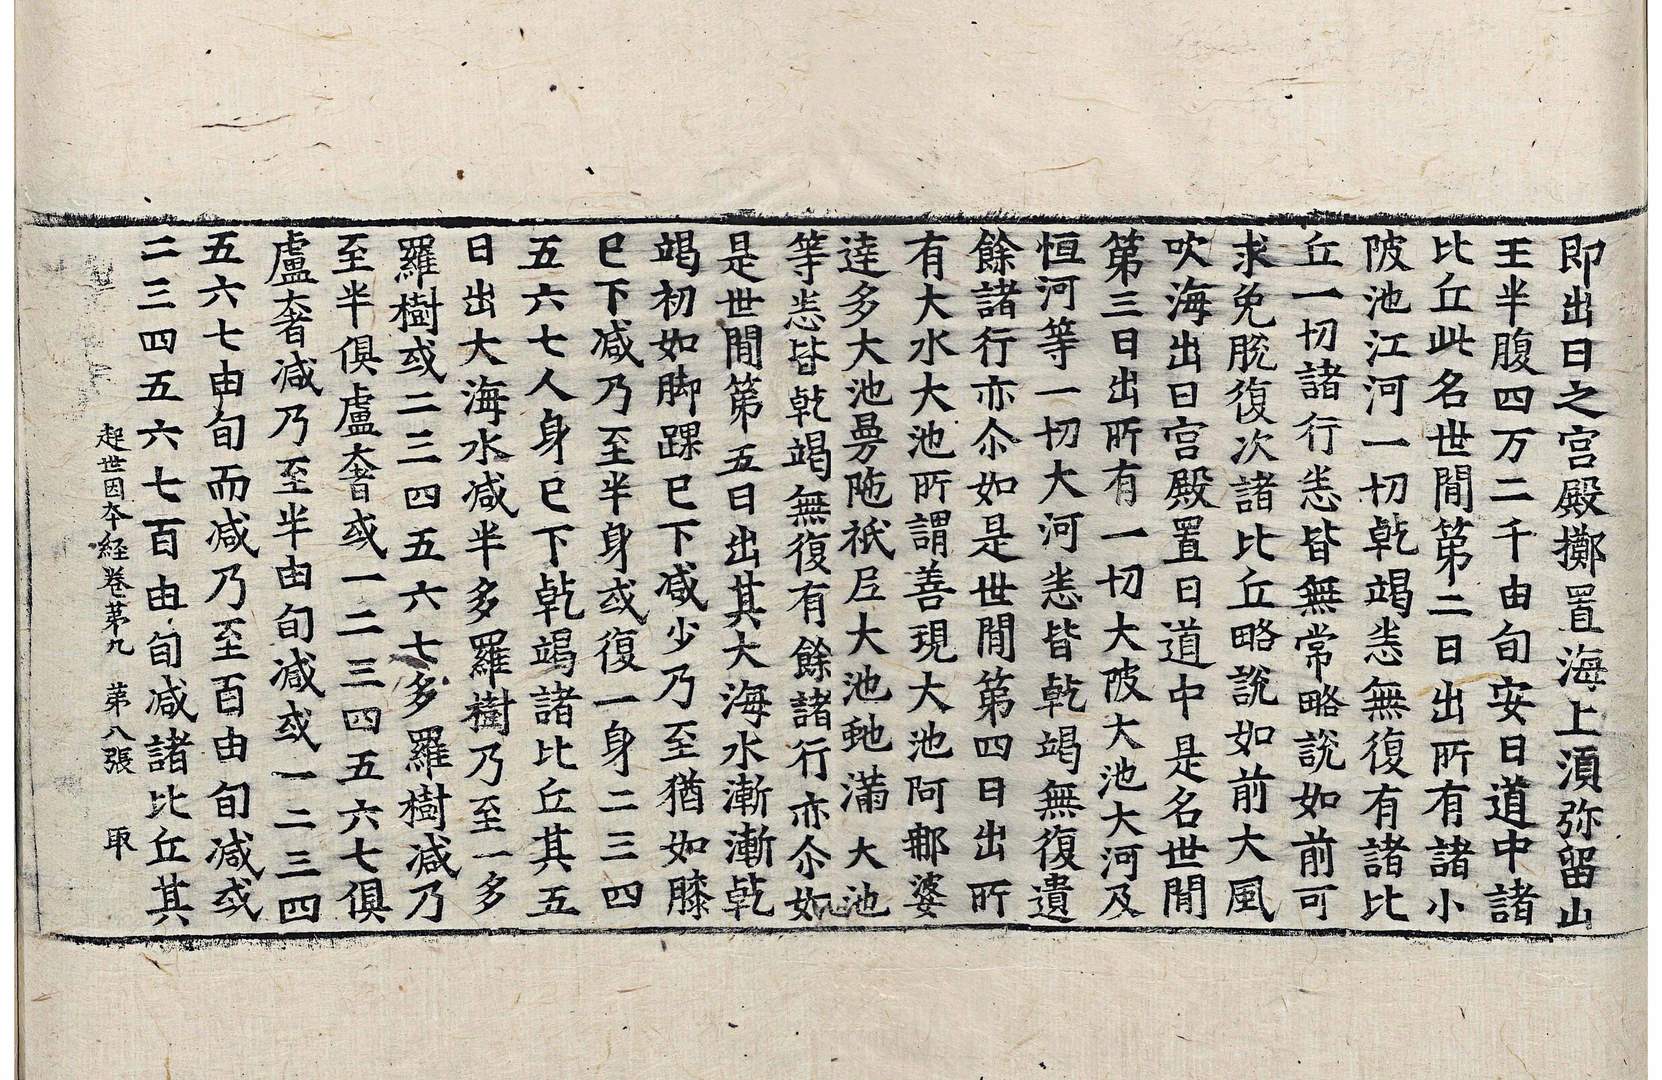 即出日之宮殿擲置海上湏弥留山
王半腹四万二千由旬安日道中諸
比丘此名世閒第二日出所有諸小
陂池江河一切乹竭悉無復有諸比
丘一切諸行悉皆無常略說如前可
求免脫復次諸比丘略說如前大風
吹海出日宮殿置日道中是名世閒
第三日出所有一切大陂大池大河及
恒河等一切大河悉皆乹竭無復遺
餘諸行亦尒如是世閒第四日出所
有大水大池所謂善現大池阿耨婆
達多大池曼陁祇尼大池虵滿大池
等悉皆乹竭無復有餘諸行亦尒如
是世閒第五日出其大海水漸漸乹
竭初如脚踝已下減少乃至猶如膝
已下減乃至半身或復一身二三四
五六七人身已下乹竭諸比丘其五
日出大海水減半多羅樹乃至一多
羅樹或二三四五六七多羅樹減乃
至半俱盧奢或一二三四五六七俱
盧奢減乃至半由旬減或一二三四
五六七由旬而減乃至百由旬減或
二三四五六七百由旬減諸比丘其
起世因本経卷第九　第八張　取